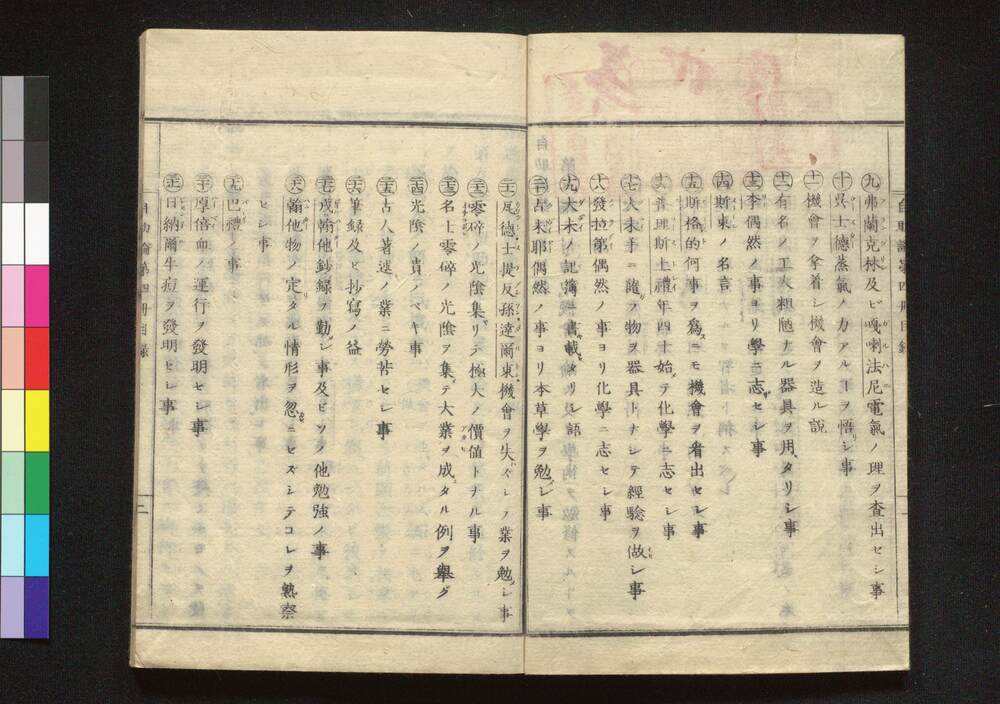 自助論第四冊目錄
㊈弗蘭克林及ビ嘎喇法尼電氣ノ理ヲ査出セシ事
㊉瓦士德蒸氣ノ力アルヿヲ悟リシ事
十一機會ヲ拿着シ機會ヲ造ル說
十二有名ノ工人粗陋ナル器具ヲ用ヰタリシ事
十三李偶然ノ事ヨリ學ニ志セシ事
十四斯東ノ名言
十五斯格的何事ヲ爲スニモ機會ヲ看出セシ事
十六普理斯土禮年四十始テ化學ニ志セシ事
十七大未手ニ隨フ物ヲ器具トナシテ經驗ヲ做シ事
十八發拉第偶然ノ事ヨリ化學ニ志セシ事
十九大未ノ記簿ニ書載タリシ語
二十古未耶偶然ノ事ヨリ本草學ヲ勉シ事
二十一瓦德士提反孫達爾東機會ヲ失ハズシテ業ヲ勉シ事
二十二零碎ノ光陰集リテ極大ノ價値トナル事
二十三名士零碎ノ光陰ヲ集テ大業ヲ成シタル例ヲ舉グ
二十四光陰ノ貴ブベキ事
二十五古人著述ノ業ニ勞苦セシ事
二十六筆録及ビ抄寫ノ益
二十七戊翰他鈔録ヲ勤シ事及ビソノ他勉強ノ事
二十八翰他物ノ定リタル情形ヲ忽ニセズシテコレヲ熟察
セシ事
二十九巴禮ノ事
三十厚倍血ノ運行ヲ發明セシ事
三十一日納爾牛痘ヲ發明セシ事
自助論第四冊目錄
二